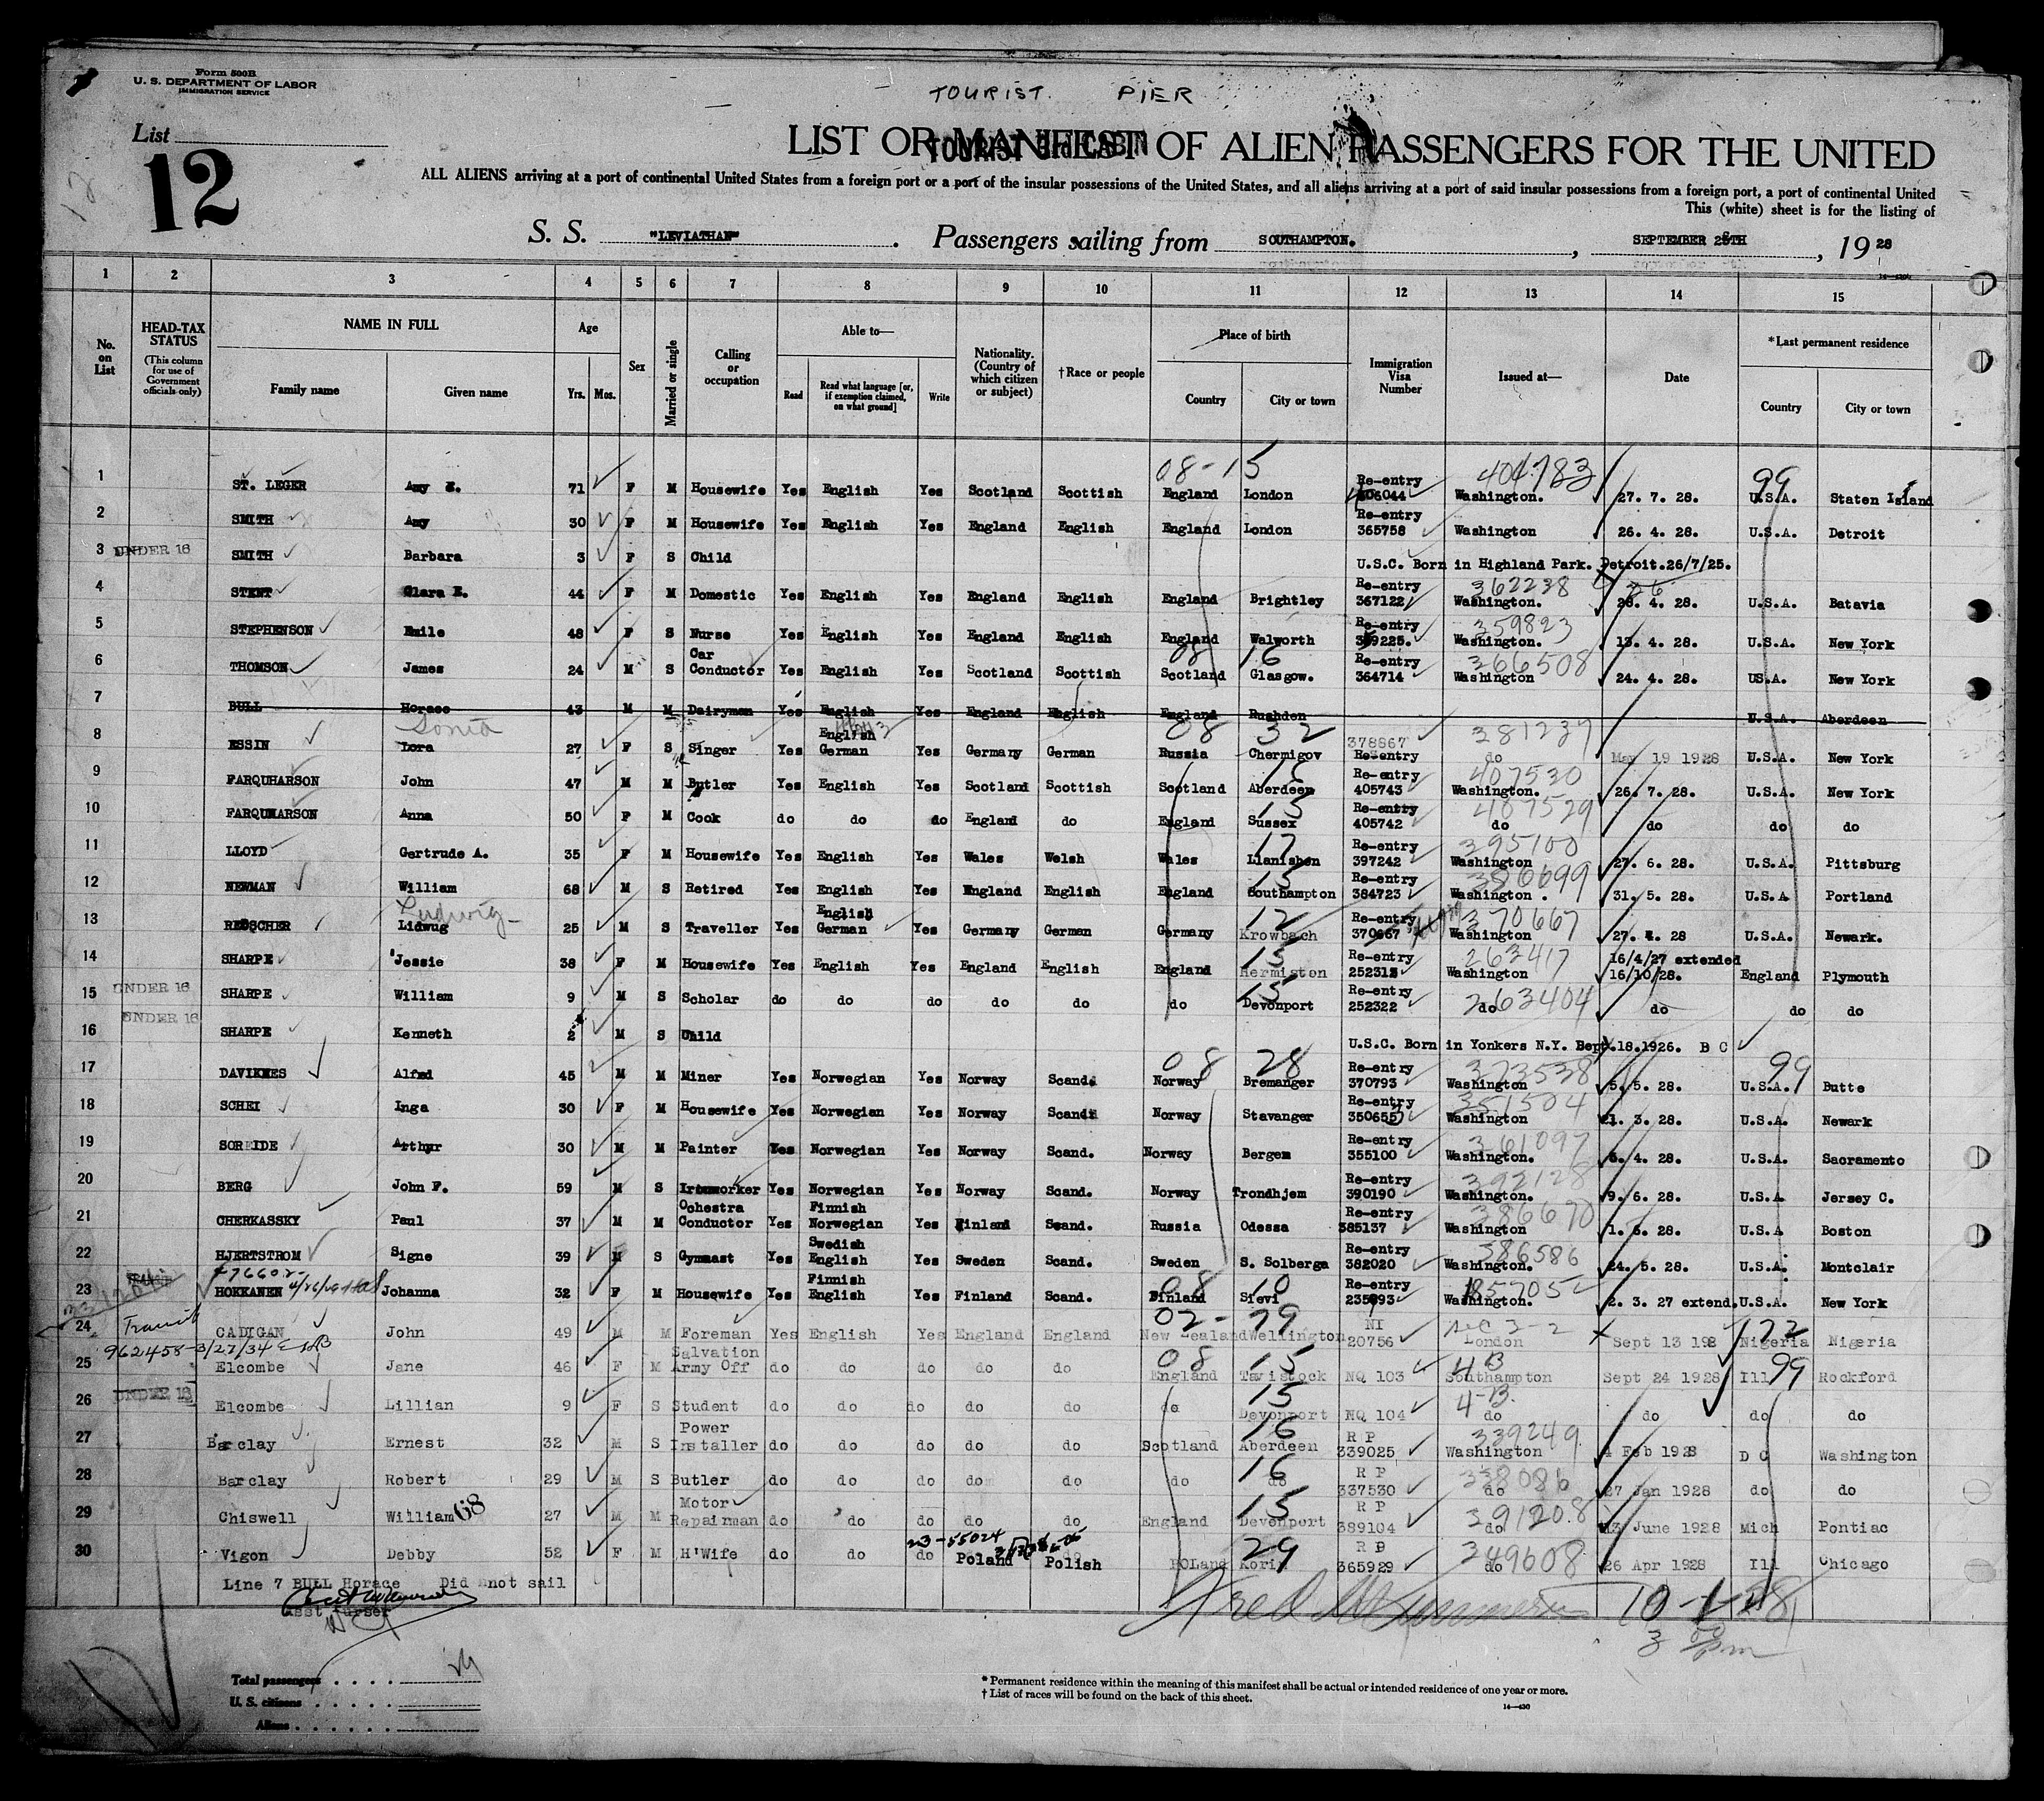 Form 500B
U. S. DEPARTMENT OF LABOR
IMMIGRATION SERVICE
TOURIST. PIER
List
12
LIST OR MANIFEST OF ALIEN PASSENGERS FOR THE UNITED
ALL ALIENS arriving at a port of continental United States from a foreign port or a port of the insular possessions of the United States, and all aliens arriving at a port of said insular possessions from a foreign port, a port of continental United
This (white) sheet is for the listing of
S. S. "LEVIATHAN" . Passengers sailing from SOUTHAMPTON. , SEPTEMBER 25TH , 1928
1 2 3 4 5 6 7 8 9 10 11 12 13 14 15
No. on List HEAD-TAX STATUS (This column for use of Government officials only) NAME IN FULL Family name Given name Age Yrs. Mos. Sex Married or single Calling or occupation Able to— Read Read what language [or, if exemption claimed, on what ground] Write Nationality. (Country of which citizen or subject) †Race or people Place of birth Country City or town Immigration Visa Number Issued at— Date *Last permanent residence Country City or town
08-15 404783 99
1 ST. LEGER Amy 71 F M Housewife Yes English Yes Scotland Scottish England London Re-entry 406044 Washington. 27. 7. 28. U.S.A. Staten Island
2 SMITH Amy 30 F M Housewife Yes English Yes England English England London Re-entry 365758 Washington 26. 4. 28. U.S.A. Detroit
3 UNDER 16 SMITH Barbara 3 F S Child U.S.C. Born in Highland Park. Detroit.26/7/25.
4 STENT Clara E. 44 F M Domestic Yes English Yes England English England Brightley Re-entry 367122 362238 Washington. 26. 4. 28. U.S.A. Batavia
5 STEPHENSON Emile 48 F S Nurse Yes English Yes England English England Walworth Re-entry 359225. 359823 Washington. 13. 4. 28. U.S.A. New York
6 THOMSON James 24 M S Car Conductor Yes English Yes Scotland Scottish 08 16 Scotland Glasgow. Re-entry 364714 366508 Washington 24. 4. 28. US.A. New York
7 BULL Horace 43 M M Dairyman Yes English Yes England English England Rushden U.S.A. Aberdeen
8 ESSIN Sonia Lora 27 F S Singer Yes English German Yes Germany German 08 32 Russia Chermigov 378867 Re-entry 381237 do May 19 1928 U.S.A. New York
9 FARQUHARSON John 47 M M Butler Yes English Yes Scotland Scottish Scotland Aberdeen Re-entry 405743 407530 Washington. 26. 7. 28. U.S.A. New York
10 FARQUHARSON Anna 50 F M Cook do do do England do 15 England Sussex Re-entry 405742 407529 do do do do
11 LLOYD Gertrude A. 35 F M Housewife Yes English Yes Wales Welsh 17 Wales Llanishen Re-entry 397242 395100 Washington 27. 6. 28. U.S.A. Pittsburg
12 NEWMAN William 68 M S Retired Yes English Yes England English 15 England Southampton Re-entry 384723 386699 Washington . 31. 5. 28. U.S.A Portland
13 Ludwig Lidwug 25 M S Traveller Yes English German Yes Germany German 12 Germany Krowbach Re-entry 370667 370667 Washington 27. 4. 28 U.S.A. Newark.
14 SHARPE Jessie 38 F M Housewife Yes English Yes England English 15 England Hermiston Re-entry 252312 263417 Washington 16/4/27 extended 16/10/28. England Plymouth
15 UNDER 16 SHARPE William 9 M S Scholar do do do do do do 15 Devonport Re-entry 252322 263404 do do do do
16 UNDER 16 SHARPE Kenneth 2 M S Child U.S.C. Born in Yonkers N.Y. Sept.18.1926. B C
17 DAVIKNES Alfred 45 M M Miner Yes Norwegian Yes Norway Scand. 08 28 Norway Bremanger Re-entry 370793 373538 Washington 5. 5. 28. 99 U.S.A. Butte
18 SCHEI Inga 30 F M Housewife Yes Norwegian Yes Norway Scand. Norway Stavanger Re-entry 350655 351504 Washington 21. 3. 28. U.S.A. Newark
19 SOREIDE Arthyr 30 M M Painter Yes Norwegian Yes Norway Scand. Norway Bergen Re-entry 355100 361097 Washington. 6. 4. 28. U.S.A. Sacramento
20 BERG John F. 59 M S Ironworker Yes Norwegian Yes Norway Scand. Norway Trondhjem Re-entry 390190 392128 Washington. 9. 6. 28. U.S.A Jersey C.
21 CHERKASSKY Paul 37 M M Ochestra Conductor Yes Finnish Norwegian Yes Finland Scand. Russia Odessa Re-entry 385137 386670 Washington 1. 6. 28. U.S.A Boston
22 HJERTSTROM Signe 39 M S Gymnast Yes Swedish English Yes Sweden Scand. Sweden S. Solberga Re-entry 382020 386586 Washington. 24. 5. 28. U.S.A. Montclair
23 HOKKANEN Johanna 32 F M Housewife Yes Finnish English Yes Finland Scand. 08 10 Finland Sievi Re-entry 235893 Washington. 2. 3. 27 extend. U.S.A. New York
24 Transit CADIGAN John 49 M M Foreman Yes English Yes England England 02-79 New Zealand Wellington NI 20756 Sec 3-2 London Sept 13 198 172 Nigeria Nigeria
962458-3/27/34
25 Elcombe Jane 46 F M Salvation Army Off do do do do do 08 15 England Tavistock NQ 103 4B Southampton Sept 24 1928 Ill 99 Rockford
26 UNDER 16 Elcombe Lillian 9 F S Student do do do do do do 15 Devonport NQ 104 4-B. do do do do
27 Barclay Ernest 32 M S Power Installer do do do do do 16 Scotland Aberdeen R P 339025 339249 Washington 4 Feb 1928 D C Washington
28 Barclay Robert 29 M S Butler do do do do do do 16 do R P 337530 338086 do 27 Jan 1928 do do
29 Chiswell William 68 27 M M Motor Repairman do do do do do England 15 Devonport R P 389104 391208 do 13 June 1928 Mich Pontiac
30 Vigon Debby 52 F M H'Wife do do do 23-55024 Poland Polish POLand 29 Korin R P 365929 349608 do 26 Apr 1928 Ill Chicago
Line 7 BULL Horace Did not sail
Asst Purser
10-1-28
3 pm
Total passengers
U. S. citizens
Aliens
* Permanent residence within the meaning of this manifest shall be actual or intended residence of one year or more.
† List of races will be found on the back of this sheet.
14—430